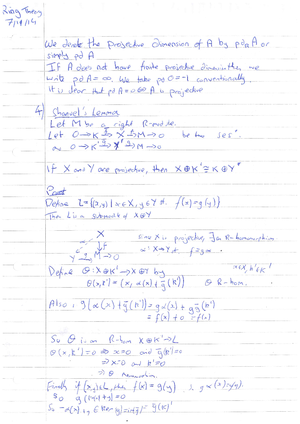 Ring Theory
7/14/14
We denote the projective dimension of A by pd_R A or
simply pd A
If A does not have finite projective dimension we
write pd A = ∞. We take pd 0 = -1 conventionally.
It is clear that pd A = 0 ⇔ A is projective
4) Shanuel's Lemma
Let M be a right R-module.
Let 0→K→X→M→0 be two ses.
0→K'→Y→M→0
If X and Y are projective, then X⊕K' ≅ K⊕Y
Proof
Define L = {(x,y) | x∈X, y∈Y st. f(x)=g(y)}
Then L is a submodule of X⊕Y
X
Y → M → 0
since X is projective, ∃ an R-homomorphism
α: X→Y st f = gα
Define θ: X⊕K' → X⊕Y by
θ(x,k') = (x, α(x) + g̅(k')) θ R-hom.
Also, g(α(x) + g̅(k')) = gα(x) + g g̅(k')
= f(x) + 0 = f(x)
So θ is an R-hom X⊕K' → L
θ(x,k') = 0 ⇔ x=0 and g̅(k')=0
⇒ x=0 and k'=0
⇒ θ monomorphism.
Finally if (x,y)∈L, then f(x) = g(y)
So